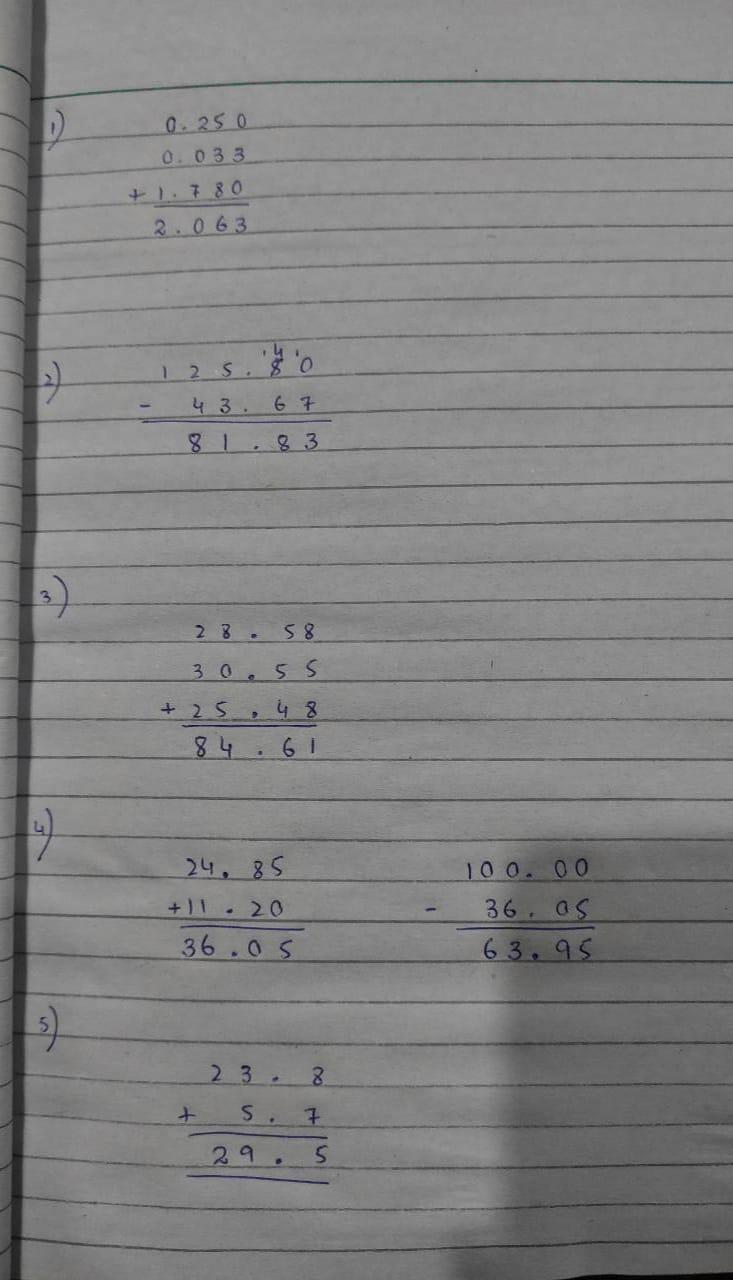 1)
0.250
0.033
+ 1.780
2.063
2)
125.80
- 43.67
81.83
3)
28.58
30.55
+ 25.48
84.61
4)
24.85 100.00
+11.20 - 36.05
36.05 63.95
5)
23.8
+ 5.7
29.5